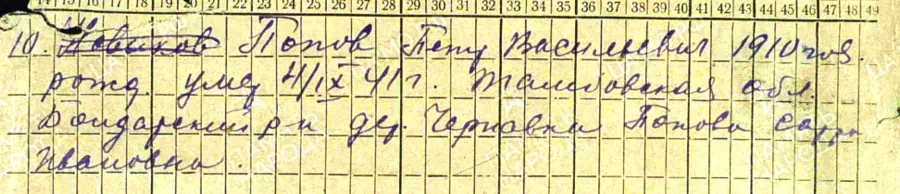 14 15 16 17 18 19 20 21 22 23 24 25 26 27 28 29 30 31 32 33 34 35 36 37 38 39 40 41 42 43 44 45 46 47 48 49
10. Новиков Попов Петр Васильевич 1910 гоя.
рожд. умер 4/IX 41 г. Тамбовская обл.
Бондарский р-н дер. Черновка Попова
Ивановна.